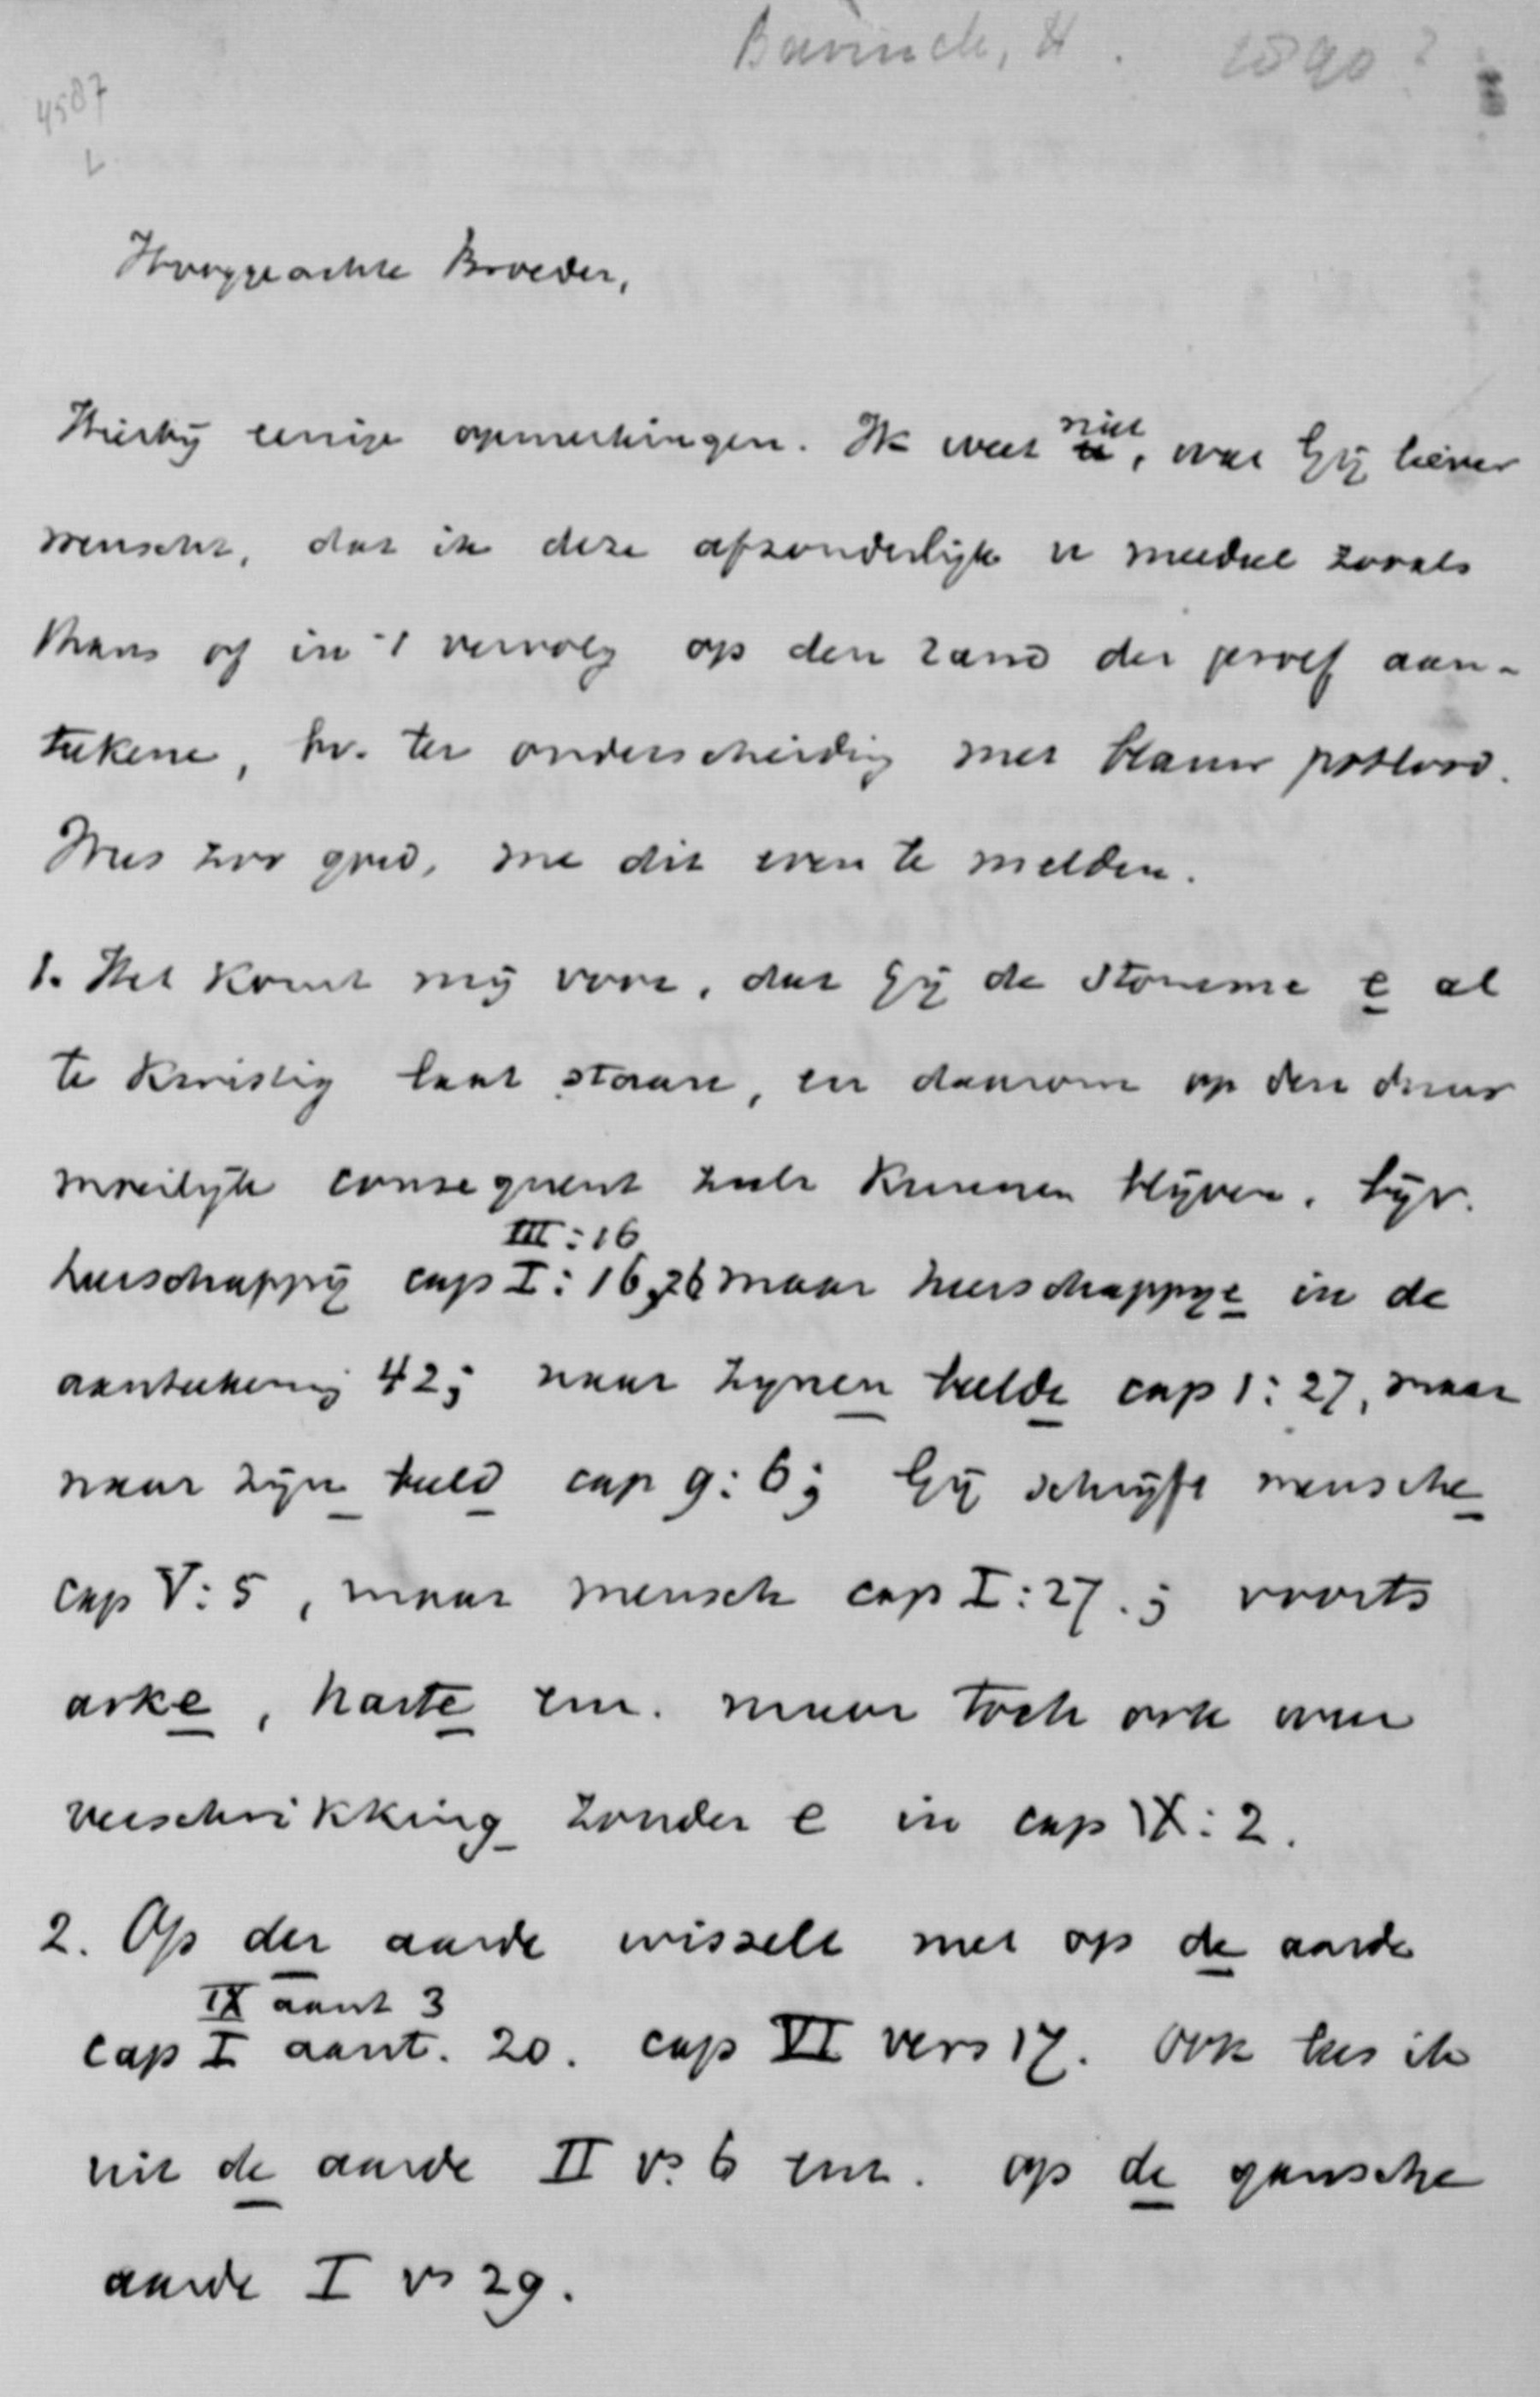 Bavinck, H. 1890?
4587
L.
Hooggeachte Broeder,
Hierbij eenige opmerkingen. Ik weet niet, wat Gij liever
wenscht, dat ik deze afzonderlijk u meedeel zooals
thans of in 't vervolg op den rand der proef aan-
teekene, bv. ter onderscheiding met blauw potlood.
Wees zoo goed, me dit even te melden.
1. Het komt mij voor, dat Gij de stomme e al
te kwistig laat staan, en daarom op den duur
moeilijk consequent zult kunnen blijven. bijv.
III:16
heerschappij cap I:16,26 maar heerschappije in de
aanteekening 42; naar zijnen beelde cap 1:27, maar
naar zijn beeld cap 9:6; Gij schrijft mensche
cap V:5, maar mensch cap I:27.; voorts
arke, harte enz. maar toch ook weer
verschrikking zonder e in cap IX:2.
2. Op der aarde wisselt met op de aarde
IX aant 3
cap I aant. 20. cap VI vers 17. Ook lees ik
uit de aarde II vs. 6 enz. op de gansche
aarde I vs 29.